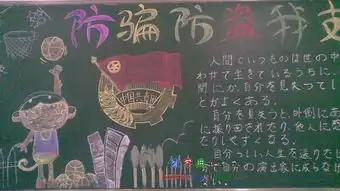 防骗防盗我支
中国共青团
人間というものは世の中
わせで生きているうちに、
間にか、自分を見失ってし
とがよくある。
自分を見失うと、外側にあ
に振り回されたり、他人に惑
たりしやすくなる。
自分らしい人生を送りたけ
分で自分の演出家に成らなけ
ない。